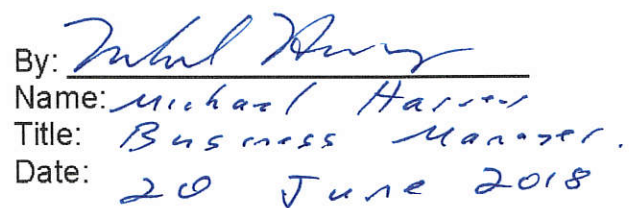 By:
Name: Michael
Title: Business Manager.
Date: 20 June 2018